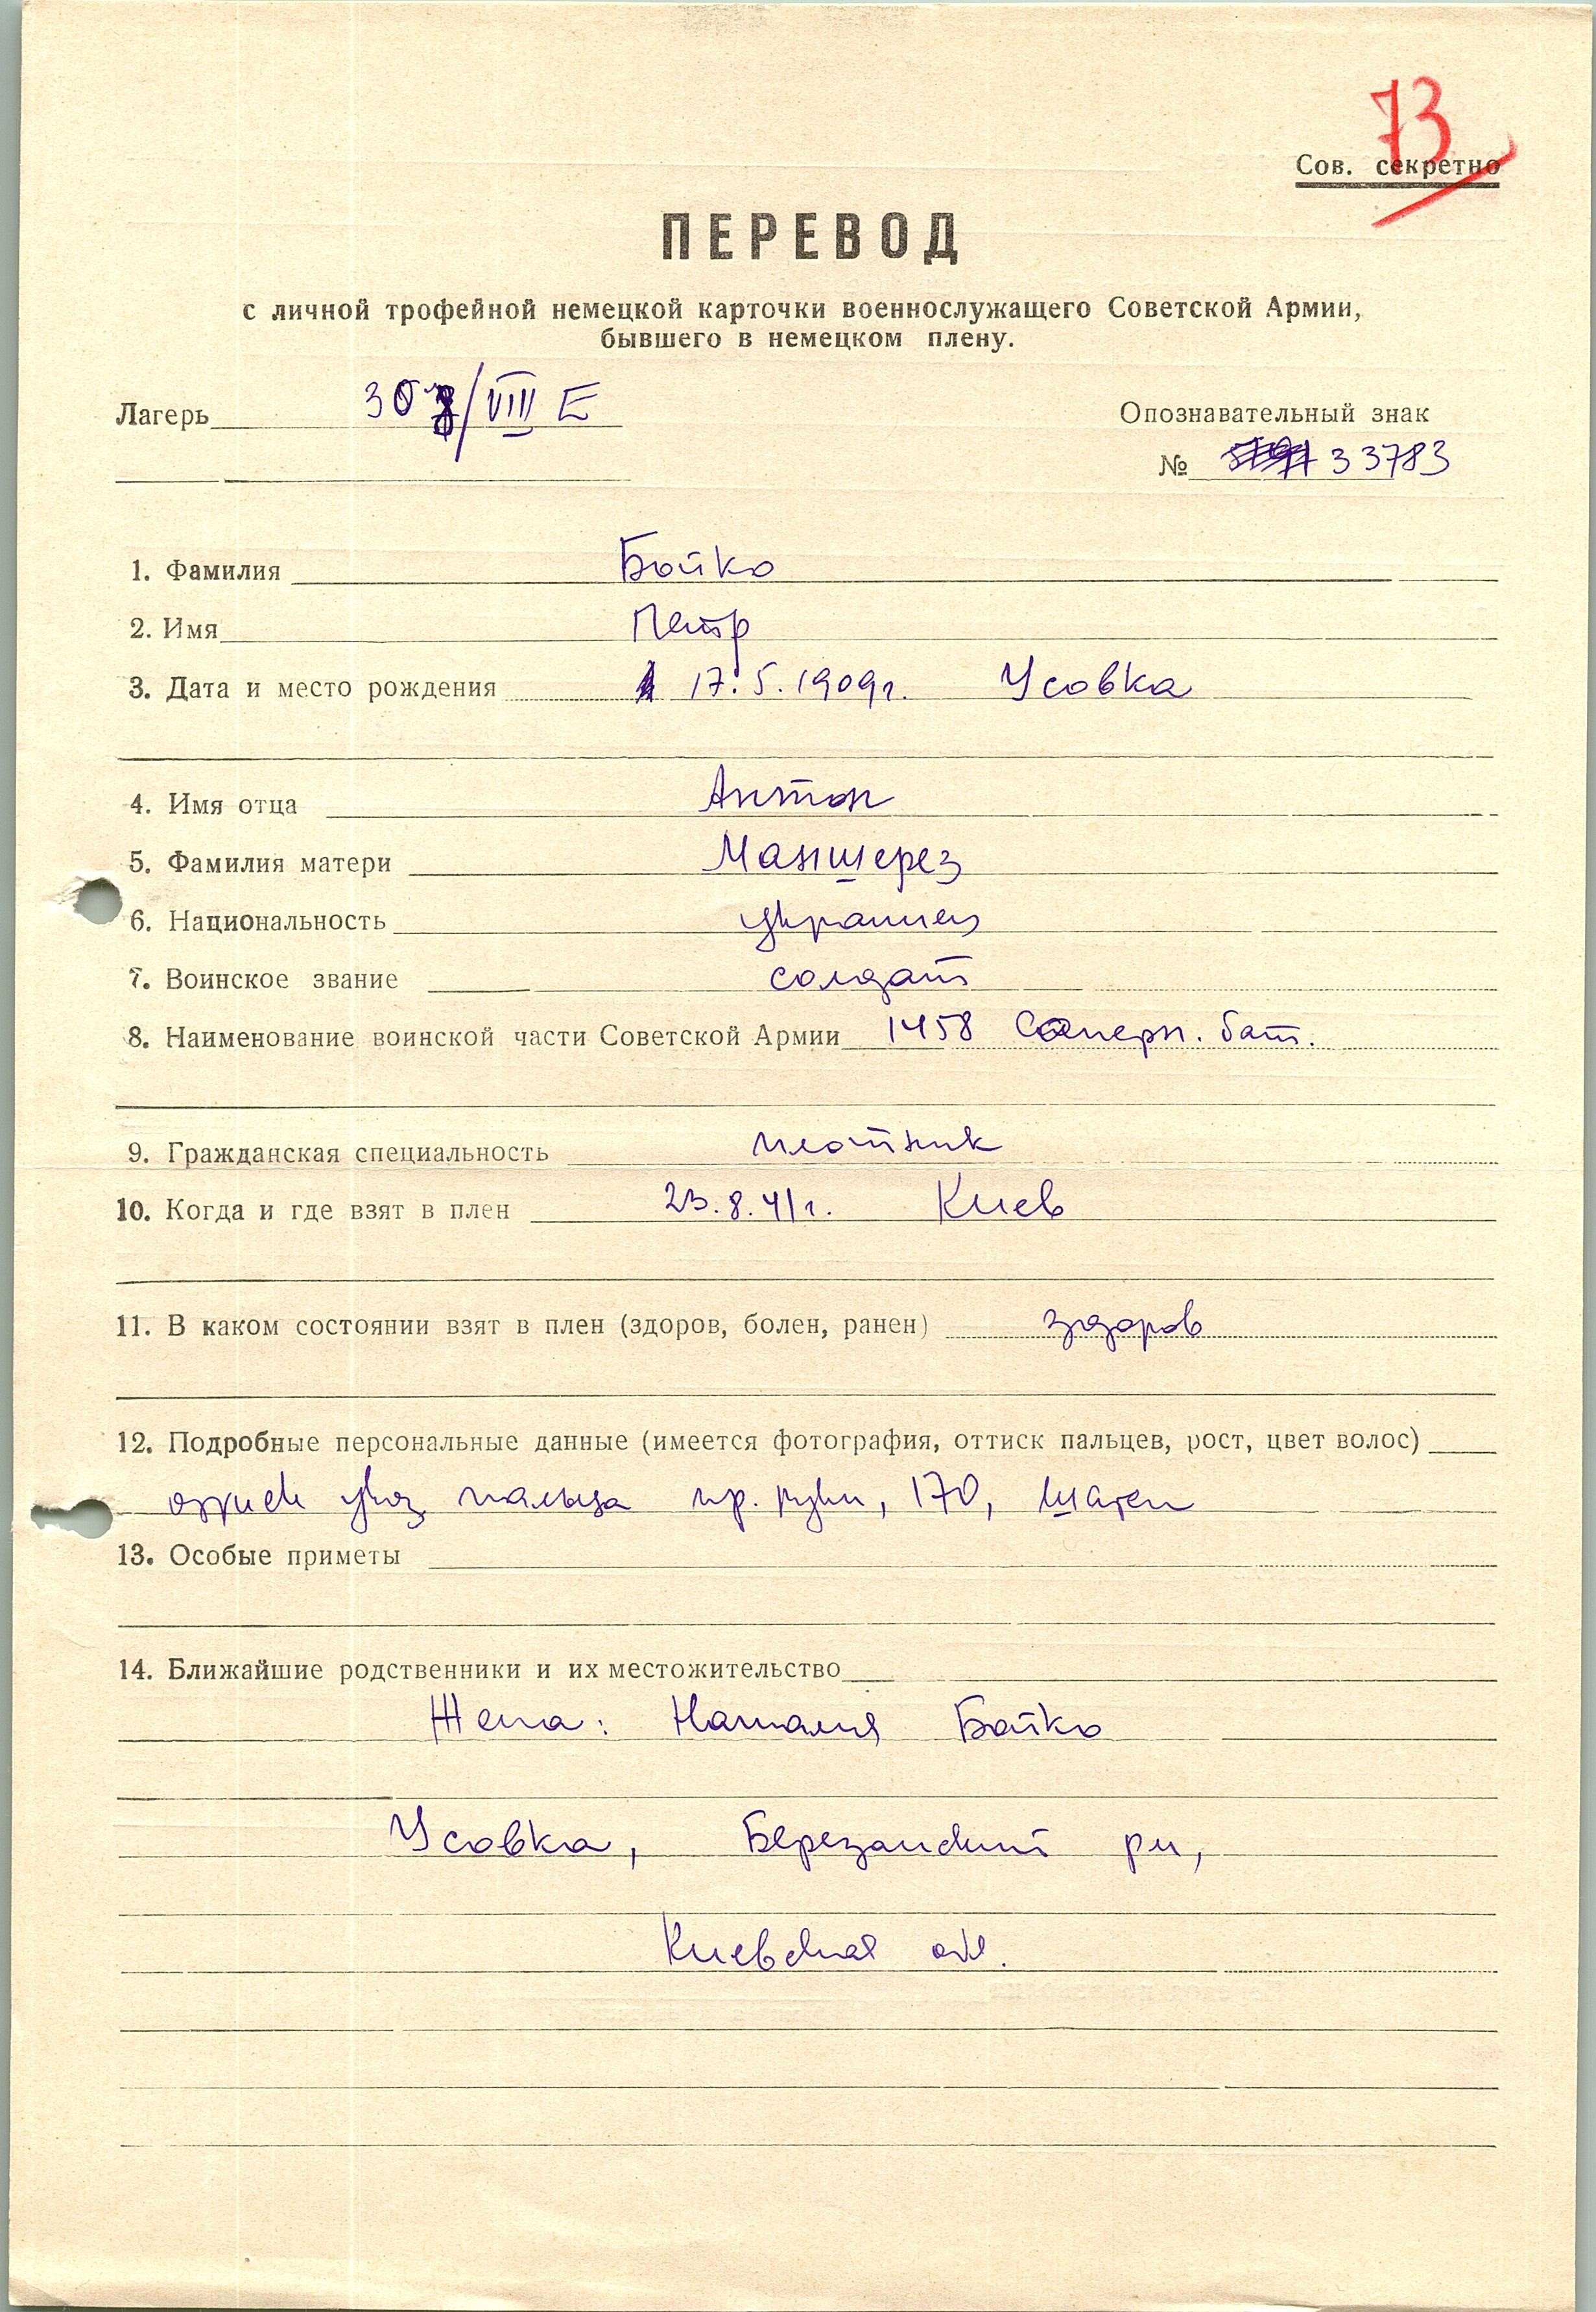 73
Сов. секретно
ПЕРЕВОД
с личной трофейной немецкой карточки военнослужащего Советской Армии,
бывшего в немецком плену.
Лагерь /VIII E
Опознавательный знак
№ 33783
1. Фамилия Бойко
2. Имя Петр
3. Дата и место рождения 17.5.1909г. Усовка
4. Имя отца Антон
5. Фамилия матери Маншерез
6. Национальность украинец
7. Воинское звание солдат
8. Наименование воинской части Советской Армии 1458 Саперн. бат.
9. Гражданская специальность плотник
10. Когда и где взят в плен 23.8.41г. Киев
11. В каком состоянии взят в плен (здоров, болен, ранен) здоров
12. Подробные персональные данные (имеется фотография, оттиск пальцев, рост, цвет волос)
указ. пальца пр. руки, 170, шатен
13. Особые приметы
14. Ближайшие родственники и их местожительство
Жена: Наталия Бойко
Усовка, Березанский рн,
Киевская обл.